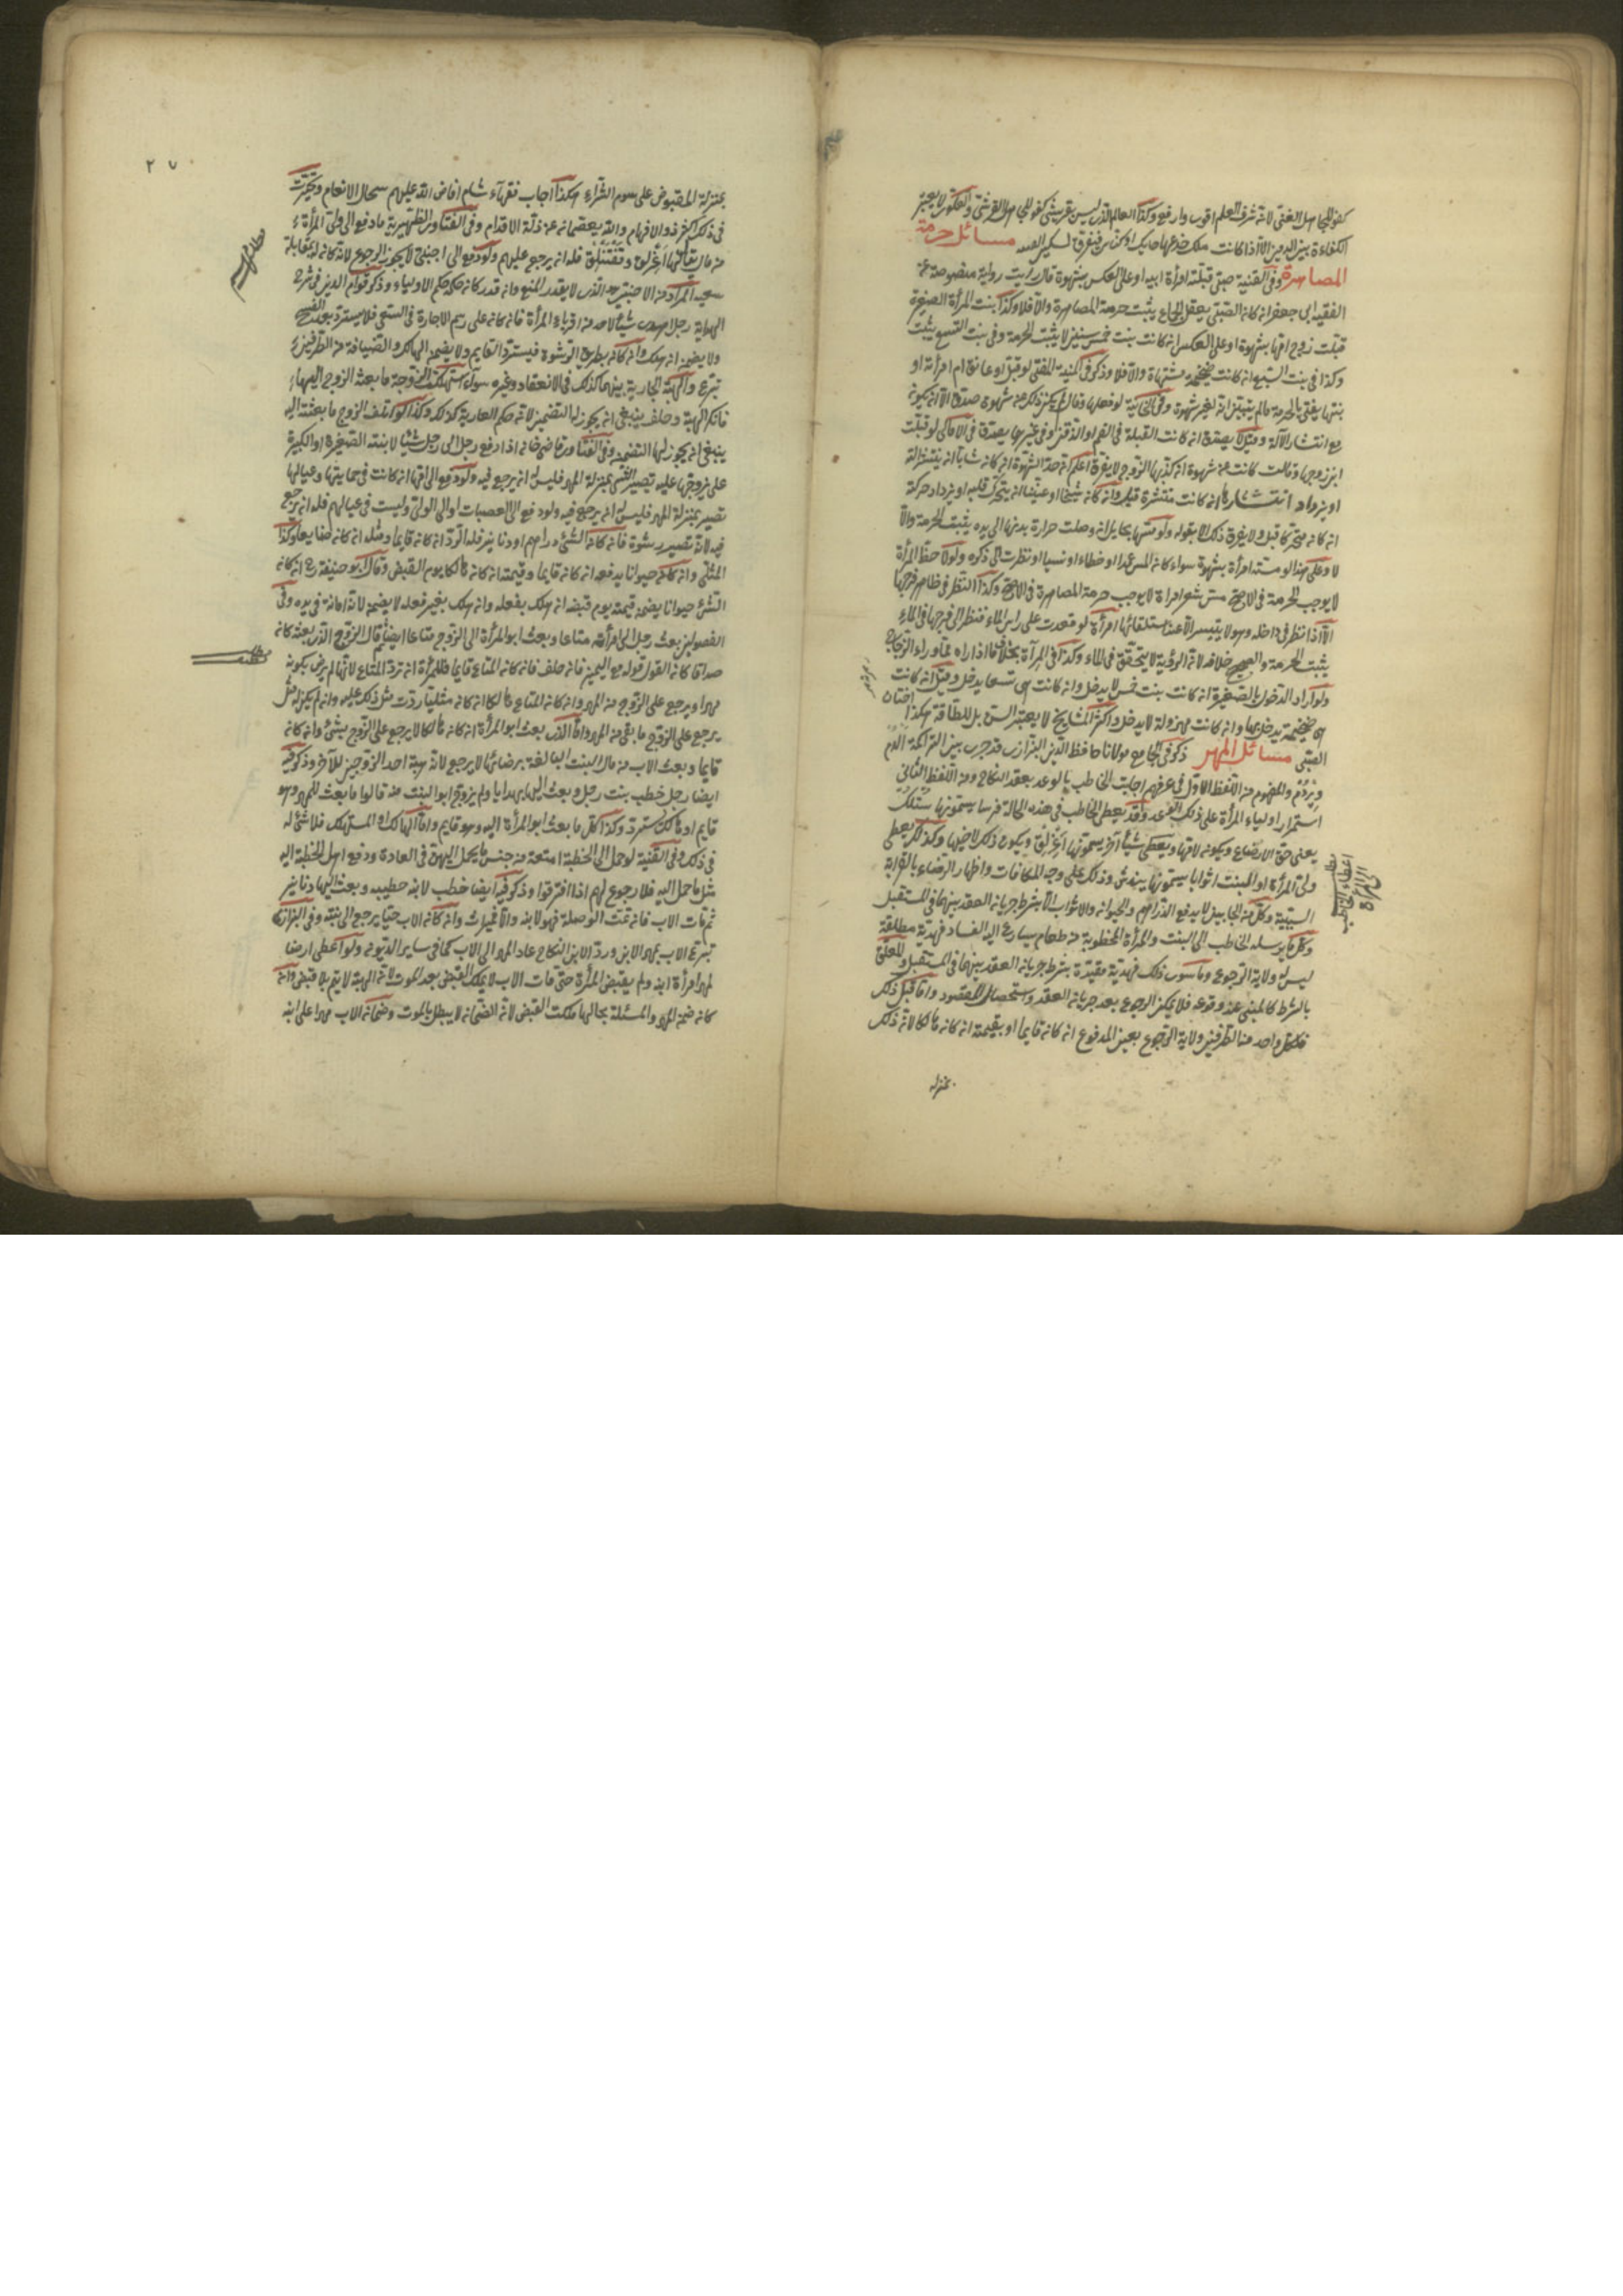 كفو للجاهل الغني لانه شرف العلم اقوى وارفع وكذا العالم الذى ليس بقريشى كفو للجاهل القرشى والعكوى لا يعتبر
الكفاءة بين الذميين الا اذا كانت ملك خدعها حايك او كناس فيفرق لتسكين الفتنه مسائل حرمة
المصاهرة وفى القنية صبى قبلته امرأة ابيه او على العكس بشهوة قال رايت رواية منصوصة عن
الفقيه ابى جعفر ان كان الصبى يعقل الجماع يثبت حرمة المصاهرة والا فلا وكذا بنت المرأة الصغيرة
قبلت زوج امها بشهوة او على العكس ان كانت بنت خمس سنين لا يثبت الحرمة وفى بنت التسع يثبت
وكذا فى بنت السبع ان كانت ضخمة مشتهاة والا فلا وذكر فى المنية المفتى لو قبل او عانق ام امرأته او
بنتها يفتى بالحرمة ما لم يتبين انه لغير شهوة وفى الخانية لو فعلها وقال لم يكن ذلك عن شهوة صدق الا ان يكون
مع انتشار الآلة وقيل لا يصدق ان كانت القبلة فى الفم او الذقن وفى غيرها يصدق فى الاماكن لو قبلت
ابن زوجها وقالت كانت عن شهوة ان كذبها الزوج لا يفرق اعلم ان حد الشهوة ان كان شابا ان ينتشر آلته
او يزداد انتشارها ان كانت منتشرة قبل وان كان شيخا او عنينا ان يتحرك قلبه او يزداد حركة
ان كان متحركا قبل ولا يفرق ذلك الا بقوله ولو مسها بحايل ان وصلت حرارة بدنها الى يده يثبت الحرمة والا
لا وعلى هذا لو مست امرأة بشهوة سواء كان المس عمدا او خطاء او نسيا او نظرت الى ذكره ولو لاحظ المرأة
لا يوجب الحرمة فى الاصح مس شعر امراة لا يوجب حرمة المصاهرة فى الاصح وكذا النظر فى ظاهر فرجها
الا اذا نظر فى داخله وهو لا يتيسر الا عند استلقائها امرأة لو قعدت على راس الماء فنظر الى فرجها فى الماء
يثبت الحرمة والصحيح خلافه لان الرؤية لا يتحقق فى الماء وكذا فى المرآة بخلاف ما اذا راه عما وراء الزجاج
ولو اراد الدخول بالصغيرة ان كانت بنت خمس لا يدخل وان كانت هى تسعا يدخل وقيل ان كانت
هى ضخمة يدخل بها وان كانت مهزولة لا يدخل واكثر المشايخ لا يعتبر السن بل للطاقة هكذا اختاره
العتبى مسائل المهر ذكر فى الجامع مولانا حافظ الدين البزازى قد جرت بين التراكمة
والمفهوم من اللفظ الاول فى عرفهم اجابت الخاطب بالوعد بعقد النكاح ومن اللفظ الثانى
استمرار اولياء المرأة على ذلك الوعد وقد يعطى الخاطب فى هذه الحالة فرسا يسمونها
يعنى حق الارضاع ويكون لامها ويعطى شيئا آخر يسمونها ويكون ذلك لاخيها وكذلك يعطى
ولى المرأة او البنت اثوابا يسمونها وذلك على وجه المكافات واظهار الرضاء بالقرابة
السببية وكل من الجانبين لا يدفع الدراهم والحيوان والاثواب الا بشرط جريان العقد بينهما فى المستقبل
وكل ما يرسله الخاطب الى البنت والمرأة المخطوبة من طعام يسارع اليه الفساد فهدية مطلقة
ليس له ولاية الرجوع وما سوى ذلك فهدية مقيدة بشرط جريان العقد بينهما فى المستقبل والمعلق
بالشرط كالمبنى عند وقوعه فلا يمكن الرجوع بعد جريان العقد واستحصال المقصود واما قبل ذلك
فلكل واحد من الطرفين ولاية الرجوع بعين المدفوع ان كان قايما او بقيمته ان كان هالكا لان ذلك
بمنزلة
٢٧
بمنزلة المقبوض على سوم الشراء هكذا اجاب فقهاء شام افاض الله عليهم سحال الانعام وتحيرت
فى ذلك اكثر ذو الافهام والله يعصمنا عن ذلة الاقدام وفى الفتاوى الظهيرية ما دفع الى ولى المرأة
فله ان يرجع عليهم ولو دفع الى اجنبى لا يجوز الرجوع لانه كان له بمقابلة
سعيه المراد من الاجنبى هو الذى لا يقدر المنع وان قدر كان حكمه حكم الاولياء وذكر قوام الدين فى شرح
الهداية رجل اهدى شيئا لاحد من اقرباء المرأة فان كان على رسم الاجارة فى السنى فلا يسترد بعد الفسخ
ولا يضمن ان هلك وان كان بطريق الرشوة فيسترد القايم ولا يضمن الهالك والضيافة من الطرفين
تبرع والهبة الجارية بينهما كذلك فى الانعقاد وغيره سواء استهلكت الزوجة ما بعث الزوج اليها
فانكر الهبة وحلف ينبغى ان يجوز له التضمين لان حكم العارية كذلك وكذا لو اتلف الزوج ما بعثته اليه
ينبغى ان يجوز لها التضمين وفى الفتاوى قاضى خان اذا دفع رجل الى رجل شيئا لابنته الصغيرة او الكبيرة
على تزوجها عليه تصير الشئ بمنزلة المهر فليس له ان يرجع فيه ولو دفع الى امها ان كانت فى حمايتها وعيالها
تصير بمنزلة المهر فليس له ان يرجع فيه ولو دفع الى العصبات او الى الولى وليست فى عيالهم فله ان يرجع
فيه لانه تصير رشوة فان كان الشئ دراهم او دنانير فله الرد ان كان قايما ومثله ان كان ضايعا وكذا
المثلى وان كان حيوانا يدفعه ان كان قايما وقيمته ان كان هالكا يوم القبض وقال ابو حنيفة رح ان كان
الشئ حيوانا يضمن قيمته يوم قبضه ان هلك بفعله وان هلك بغير فعله لا يضمن لانه امانة فى يده وفى
الفصولين بعث رجل الى امرأته متاعا وبعث ابو المرأة الى الزوج متاعا ايضا ثم قال الزوج الذى بعثه كان
صداقا كان القول قوله مع اليمين فان حلف فان كان المتاع قايما فللمرأة ان ترد المتاع لانها لم يرض بكونه
مهرا ويرجع على الزوج من المهر وان كان المتاع هالكا ان كان مثليا ردت مثل ذلك عليه وان لم يكن له مثل
يرجع على الزوج ما بقى من المهر واما الذى بعث ابو المرأة ان كان هالكا لا يرجع على الزوج بشئ وان كان
قايما وبعث الاب من مال البنت البالغة برضائها لا يرجع لانه هبة احد الزوجين للآخر وذكر فيه
ايضا رجل خطب بنت رجل وبعث اليها بهدايا ولم يزوج ابو البنت منه قالوا ما بعث للمهر وهو
قايم او هالك يسترد وكذا كل ما بعث ابو المرأة اليه وهو قايم واما الهالك او المستهلك فلا شئ له
فى ذلك وفى القنية لو حمل الى الخطبة امتعة من جنس ما يحمل اليهن فى العادة ودفع اهل الخطبة اليه
مثل ما حمل اليه فلا رجوع لهم اذا افترقوا وذكر فيه ايضا خطب لابنه خطيبه وبعث اليها دنانير
ثم مات الاب فان تمت الوصلة فهو لابنه والا فميراث وان كان الاب حيا يرجع الى بنته وفى البزازى
تبرع الاب بمهر الابن ورد الابن النكاح عاد المهر الى الاب كما فى ساير الديون ولو اعطى ارضا
لمهر امرأة ابنه ولم يقبض المرأة حتى مات الاب لا يملك القبض بعد الموت لان الهبة لا يتم بلا قبض وان
كان ضمن المهر والمسئلة بحالها ملكت القبض لان الضمان لا يبطل بالموت وضمان الاب مهرا على ابنه